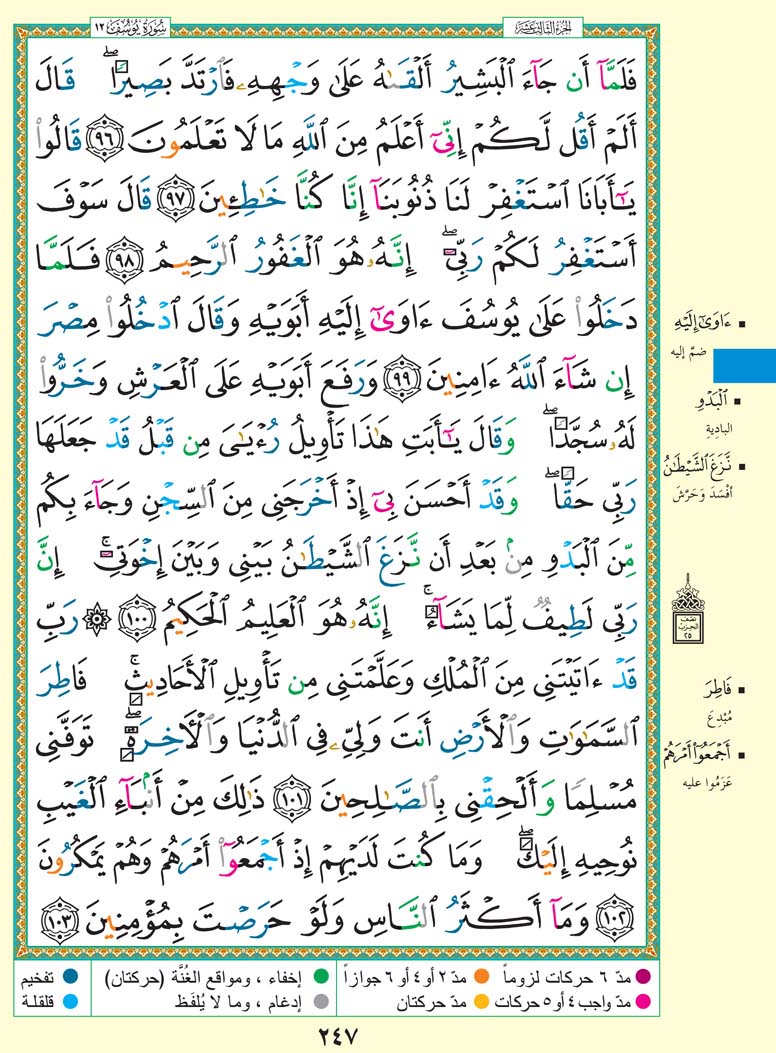 الجزء الثالث عشر
سورة يوسف ١٢
فَلَمَّآ أَن جَآءَ ٱلْبَشِيرُ أَلْقَىٰهُ عَلَىٰ وَجْهِهِۦ فَٱرْتَدَّ بَصِيرًا ۖ قَالَ
أَلَمْ أَقُل لَّكُمْ إِنِّىٓ أَعْلَمُ مِنَ ٱللَّهِ مَا لَا تَعْلَمُونَ ٩٦ قَالُوا۟
يَـٰٓأَبَانَا ٱسْتَغْفِرْ لَنَا ذُنُوبَنَآ إِنَّا كُنَّا خَـٰطِـِٔينَ ٩٧ قَالَ سَوْفَ
أَسْتَغْفِرُ لَكُمْ رَبِّىٓ ۖ إِنَّهُۥ هُوَ ٱلْغَفُورُ ٱلرَّحِيمُ ٩٨ فَلَمَّا
دَخَلُوا۟ عَلَىٰ يُوسُفَ ءَاوَىٰٓ إِلَيْهِ أَبَوَيْهِ وَقَالَ ٱدْخُلُوا۟ مِصْرَ
إِن شَآءَ ٱللَّهُ ءَامِنِينَ ٩٩ وَرَفَعَ أَبَوَيْهِ عَلَى ٱلْعَرْشِ وَخَرُّوا۟
لَهُۥ سُجَّدًا ۖ وَقَالَ يَـٰٓأَبَتِ هَـٰذَا تَأْوِيلُ رُءْيَـٰىَ مِن قَبْلُ قَدْ جَعَلَهَا
رَبِّى حَقًّا ۖ وَقَدْ أَحْسَنَ بِىٓ إِذْ أَخْرَجَنِى مِنَ ٱلسِّجْنِ وَجَآءَ بِكُم
مِّنَ ٱلْبَدْوِ مِنۢ بَعْدِ أَن نَّزَغَ ٱلشَّيْطَـٰنُ بَيْنِى وَبَيْنَ إِخْوَتِىٓ ۚ إِنَّ
رَبِّى لَطِيفٌ لِّمَا يَشَآءُ ۚ إِنَّهُۥ هُوَ ٱلْعَلِيمُ ٱلْحَكِيمُ ١٠٠ ۞ رَبِّ
قَدْ ءَاتَيْتَنِى مِنَ ٱلْمُلْكِ وَعَلَّمْتَنِى مِن تَأْوِيلِ ٱلْأَحَادِيثِ ۚ فَاطِرَ
ٱلسَّمَـٰوَٰتِ وَٱلْأَرْضِ أَنتَ وَلِىِّۦ فِى ٱلدُّنْيَا وَٱلْـَٔاخِرَةِ ۖ تَوَفَّنِى
مُسْلِمًا وَأَلْحِقْنِى بِٱلصَّـٰلِحِينَ ١٠١ ذَٰلِكَ مِنْ أَنۢبَآءِ ٱلْغَيْبِ
نُوحِيهِ إِلَيْكَ ۖ وَمَا كُنتَ لَدَيْهِمْ إِذْ أَجْمَعُوٓا۟ أَمْرَهُمْ وَهُمْ يَمْكُرُونَ
١٠٢ وَمَآ أَكْثَرُ ٱلنَّاسِ وَلَوْ حَرَصْتَ بِمُؤْمِنِينَ ١٠٣
ءَاوَىٰٓ إِلَيْهِ
ضمّ إليه
ٱلْبَدْوِ
البادية
نَّزَغَ ٱلشَّيْطَـٰنُ
أَفْسَدَ وَحَرَّشَ
نصف
الحزب
٢٥
فَاطِرَ
مُبْدِعَ
أَجْمَعُوٓا۟ أَمْرَهُمْ
عَزَمُوا عليه
مدّ ٦ حركات لزوماً
مدّ ٢ أو ٤ أو ٦ جوازاً
إخفاء ، ومواقع الغُنَّة (حركتان)
تفخيم
مدّ واجب ٤ أو ٥ حركات
مدّ حركتان
إدغام ، وما لا يُلفَظ
قلقلة
٢٤٧